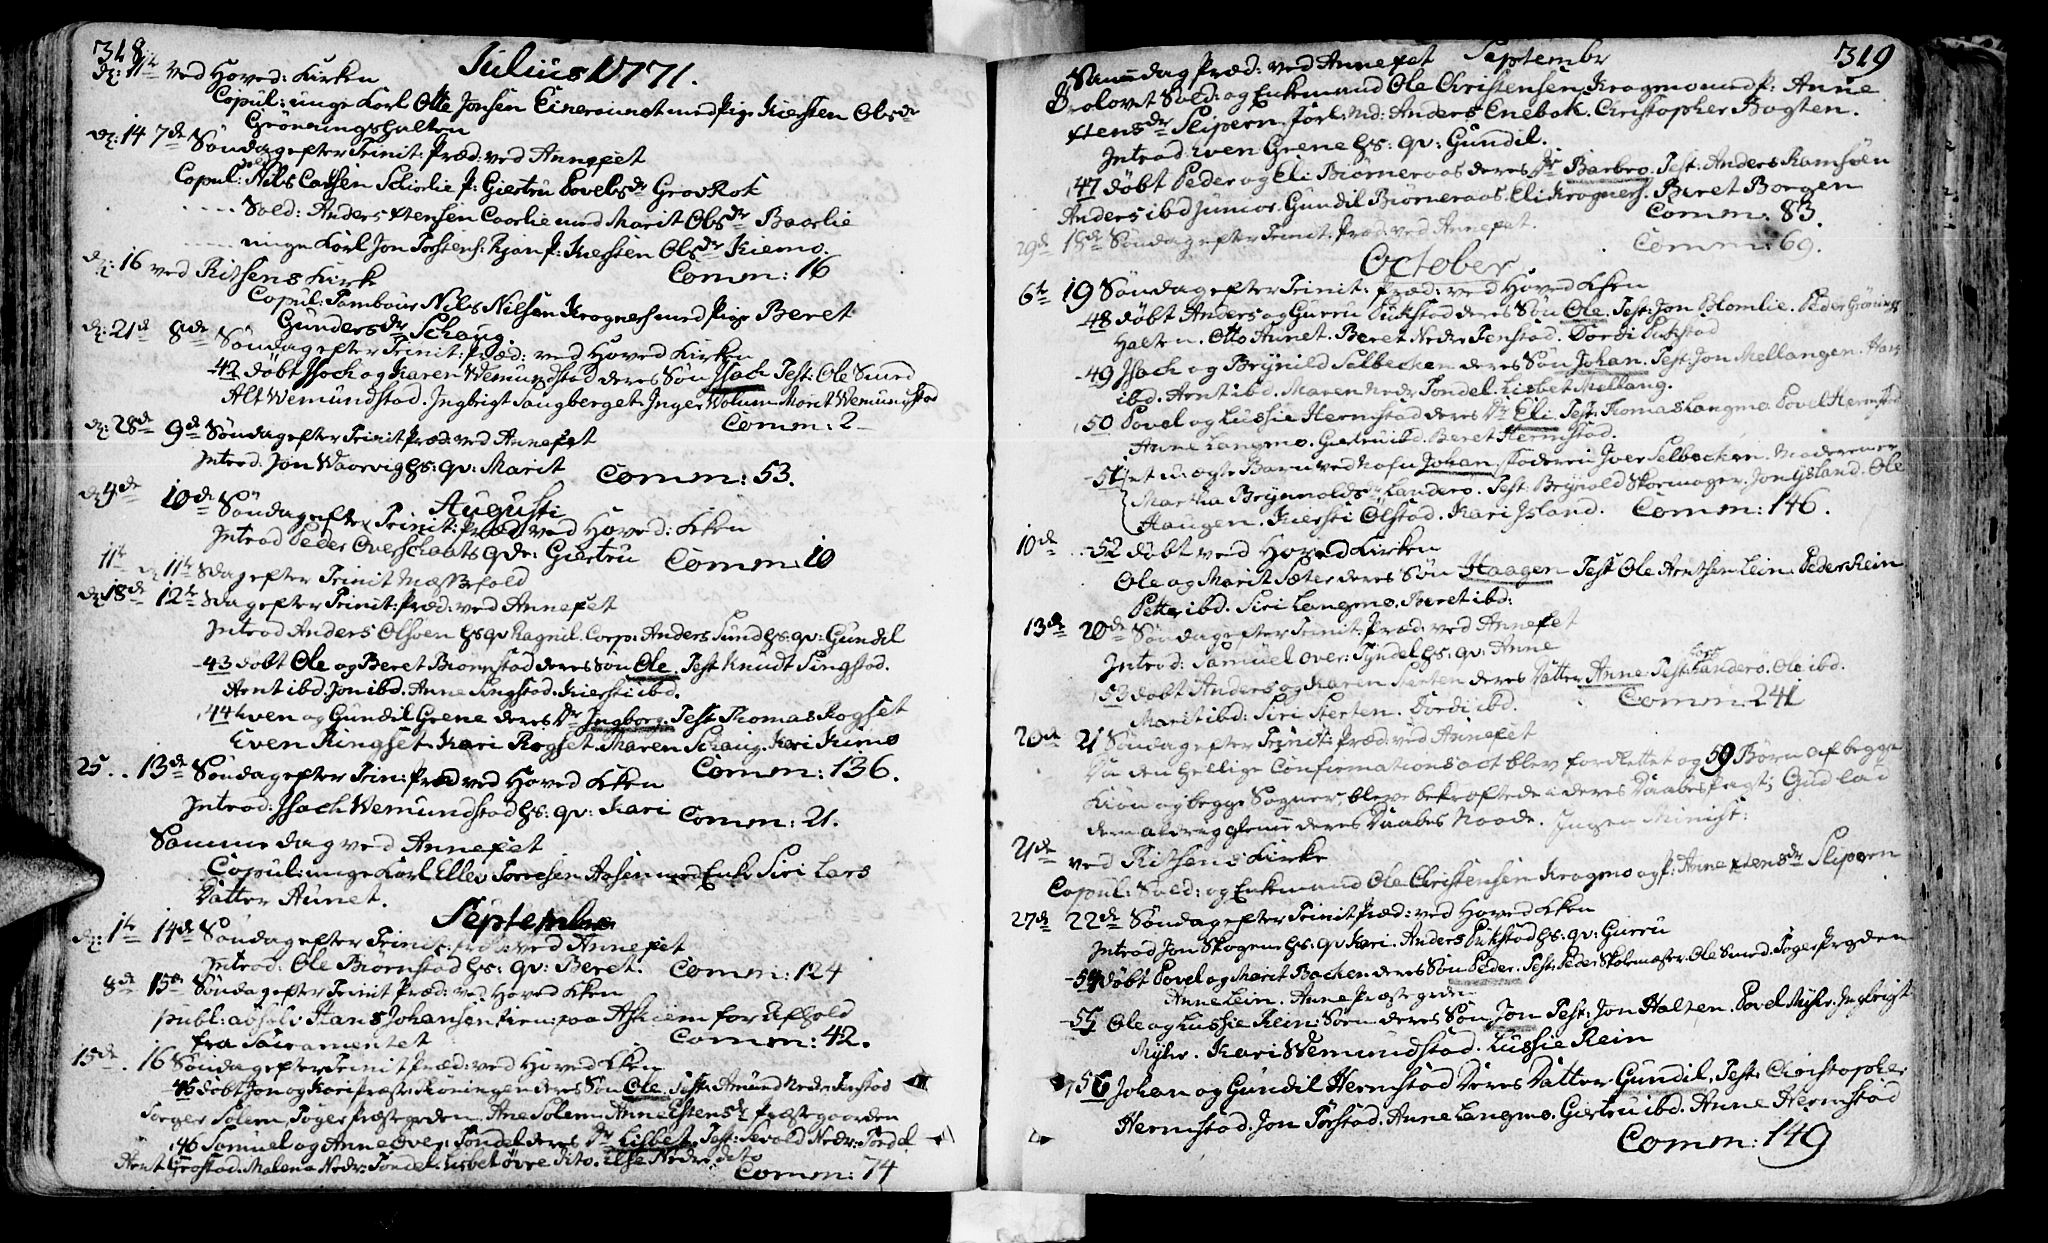 318
Julius 1771.
d: 11te ved Hoved: Kirken
Copul: unge Karl Otte Jonsen med Pige Kiersten Olsdr
Grønningshalten
d: 14 7de Søndag efter Trinit: Præd: ved Annexet
Copul: Sold Nils Larsen P: Giertru Povelsdr Gravrok
Sold: Anders Xtensen med Marit Olsdr Baarlie
unge Karl Jon Torstens: P: Kiersten Olsdr Kiemo.
d: 16 ved Ritsens Kirk Comm: 16
Copul: Tambour Nils Nilsen Krognes med Pige Beret
Gundersdr Schaug.
d: 21de 8de Søndag efter Trinit: Præd: ved Hoved Kirken
42 døbt Isach og Karen Wemundstad deres Søn Isach Test: Ole Smed
Alt Wemundstad. Ingbrigt Saugberget. Inger Wolum. Marit Wemundstad
d: 28de 9de Søndag efter Trinit Præd: ved Annexet Comm: 2
Introd. Jon Waarvig hs: qv: Marit Comm: 53.
Augusti
d 4de 10de Søndag efter Trinit: Præd ved Hoved: Kken
Introd Peder Overschaats qde: Giertru Comm: 10
11te d 11te Sdag efter Trinit Messefald
d: 18de 12te Sdag efter Trinit: Præd: ved Annexet
Introd Anders Olsøen hs qv Ragnil. Corp: Anders Sund hs: qv: Gundil
43 døbt Ole og Beret Biørnstad deres Søn Ole. Test: Knudt Singstad.
Arnt ibd. Jon ibd. Anne Singstad. Kiersti ibd.
44 Even og Gundil Grene deres Dr Ingborg. Test Thomas Rogset
Even Ringset. Kari Rogset. Maren Schaug. Kari Kimo
25.. 13de Søndag efter Trin: Præd ved Hoved Kken Comm: 136.
Introd: Isach Wemundstad hs: qv: Kari Comm: 21.
Samme dag ved Annexet
Copul: unge Karl Ellev Torresen Aasen med Enke Siri Lars
Datter Aunet.
Septembr
d: 1te 14de Søndag efter Trinit: præd: ved Annexet
Introd: Ole Biørnstad hs: qv: Beret. Comm: 124
8de 15de Søndag efter Trinit Præd: ved Hoved Kken
publ: absolv Hans Johansen for Afhold
fra Sacramentet Comm: 42.
15de. 16 Søndag efter Trinit Præd: ved Hoved Kken
45 døbt Jon og Kari deres Søn Ole. Test: Amund Nedr: Tenstad
Torger Solem. Toger Præstegrden. Ane Solem. Anne Estensdr Præstegaarden
46 Samuel og Anne Over: Tøndel deres Dr Lisbet. Test: Sevald Nedr: Tøndel
Arnt Grøstad. Malene Nedr: Tøndel. Lisbet øvre dito. Else Nedr: dito
Comm: 74
319
Septembr
Samme dag Præd: ved Annexet
Trolovet Sold: og Enkemand Ole Christensen Kragmo med P: Anne
Xtensdr Slipern. Forl: Md: Anders Enebok. Christopher Bagten.
Introd: Even Grene hs: qv: Gundil.
47 døbt Peder og Eli Biørneraas deres Dr Barbro. Test: Anders Ramsøen
Anders ibd Junior. Gundil Biørneraas. Eli Krognes. Beret Borgen
Comm: 83.
29de 18de Søndag efter Trinit: Præd: ved Annexet.
Comm: 69.
October
6te 19 Søndag efter Trinit: Præd: ved Hoved Kken
48 døbt Anders og Guru Pukstad deres Søn Ole. Test: Jon Blomlie. Peder Grønings
Halten. Otto Aunet. Beret Nedr: Tenstad. Dordi Pukstad
49 Isach og Brynild Selbecken deres Søn Johan. Test. Jon Mellangen. Hans
ibd. Arnt ibd. Maren Nedr Tondel. Lisbet Mellang.
50 Povel og Lussie Hermstad deres Dr Eli. Test. Thomas Langmo. Povel Hermstad
Anne Langmo. Giertru ibd. Beret Hermstad.
51 et u: ægte Barn ved Nafn Johan. Faderen Iver Selbecken. Moderen er
Martha Brynnolds Landerø. Test: Brynold Skomager. Jon Ysland. Ole
Haugen. Kiersti Olstad. Kari Island. Comm: 146.
10de .. 52 døbt ved Hoved Kirken
Ole og Marit Sæter deres Søn Haagen Test Ole Arntsen Lein. Peder Rein
Petter ibd. Siri Langmo. Beret ibd:
13de 20de Søndag efter Trinit. Præd: ved Annexet
Introd: Samuel Over: Tyndel hs: qv: Anne
53 døbt Anders og Karen Sterten deres Datter Anne. Test: Lars Landerø. Ole ibd.
Marit ibd: Siri Sterten. Dordi ibd. Comm: 241
20de 21 Søndag efter Trinit: Præd: ved Annexet
Da den Hellige Confirmations act blev forrettet og 59 Børn af begge
Kiøn og begge Sogner, bleve bekræftede i deres Daabes Pagt; Gud lad
dem aldrig glemme deres Daabes Naade. Ingen Minist:
21de ved Ritsens Kirke
Copul: Sold: og Enkemand Ole Christensen Kragmo og P: Anne Xtensdr Slipern
27de 22de Søndag efter Trinit Præd: ved Hoved Kken
Introd Jon Skogen hs: qv Kari. Anders Pukstad hs: qv: Guru
54 døbt Povel og Marit Backen deres Søn Peder. Test: Peder Skolemester. Ole Smed. Toger Prgden
Anne Lein. Anne Præstegrden
55 Ole og Lussie Rein: deres Søn Jon Test: Jon Halten. Povel Myhr. Ingbrigt
Myhr. Kari Wemundstad. Lussie Rein
56 Johan og Gundil Hermstad Deres Datter Gundil. Test: Christopher
Hermstad. Jon Tørstad. Anne Langmo. Giertru ibd. Anne Hermstad
Comm: 149